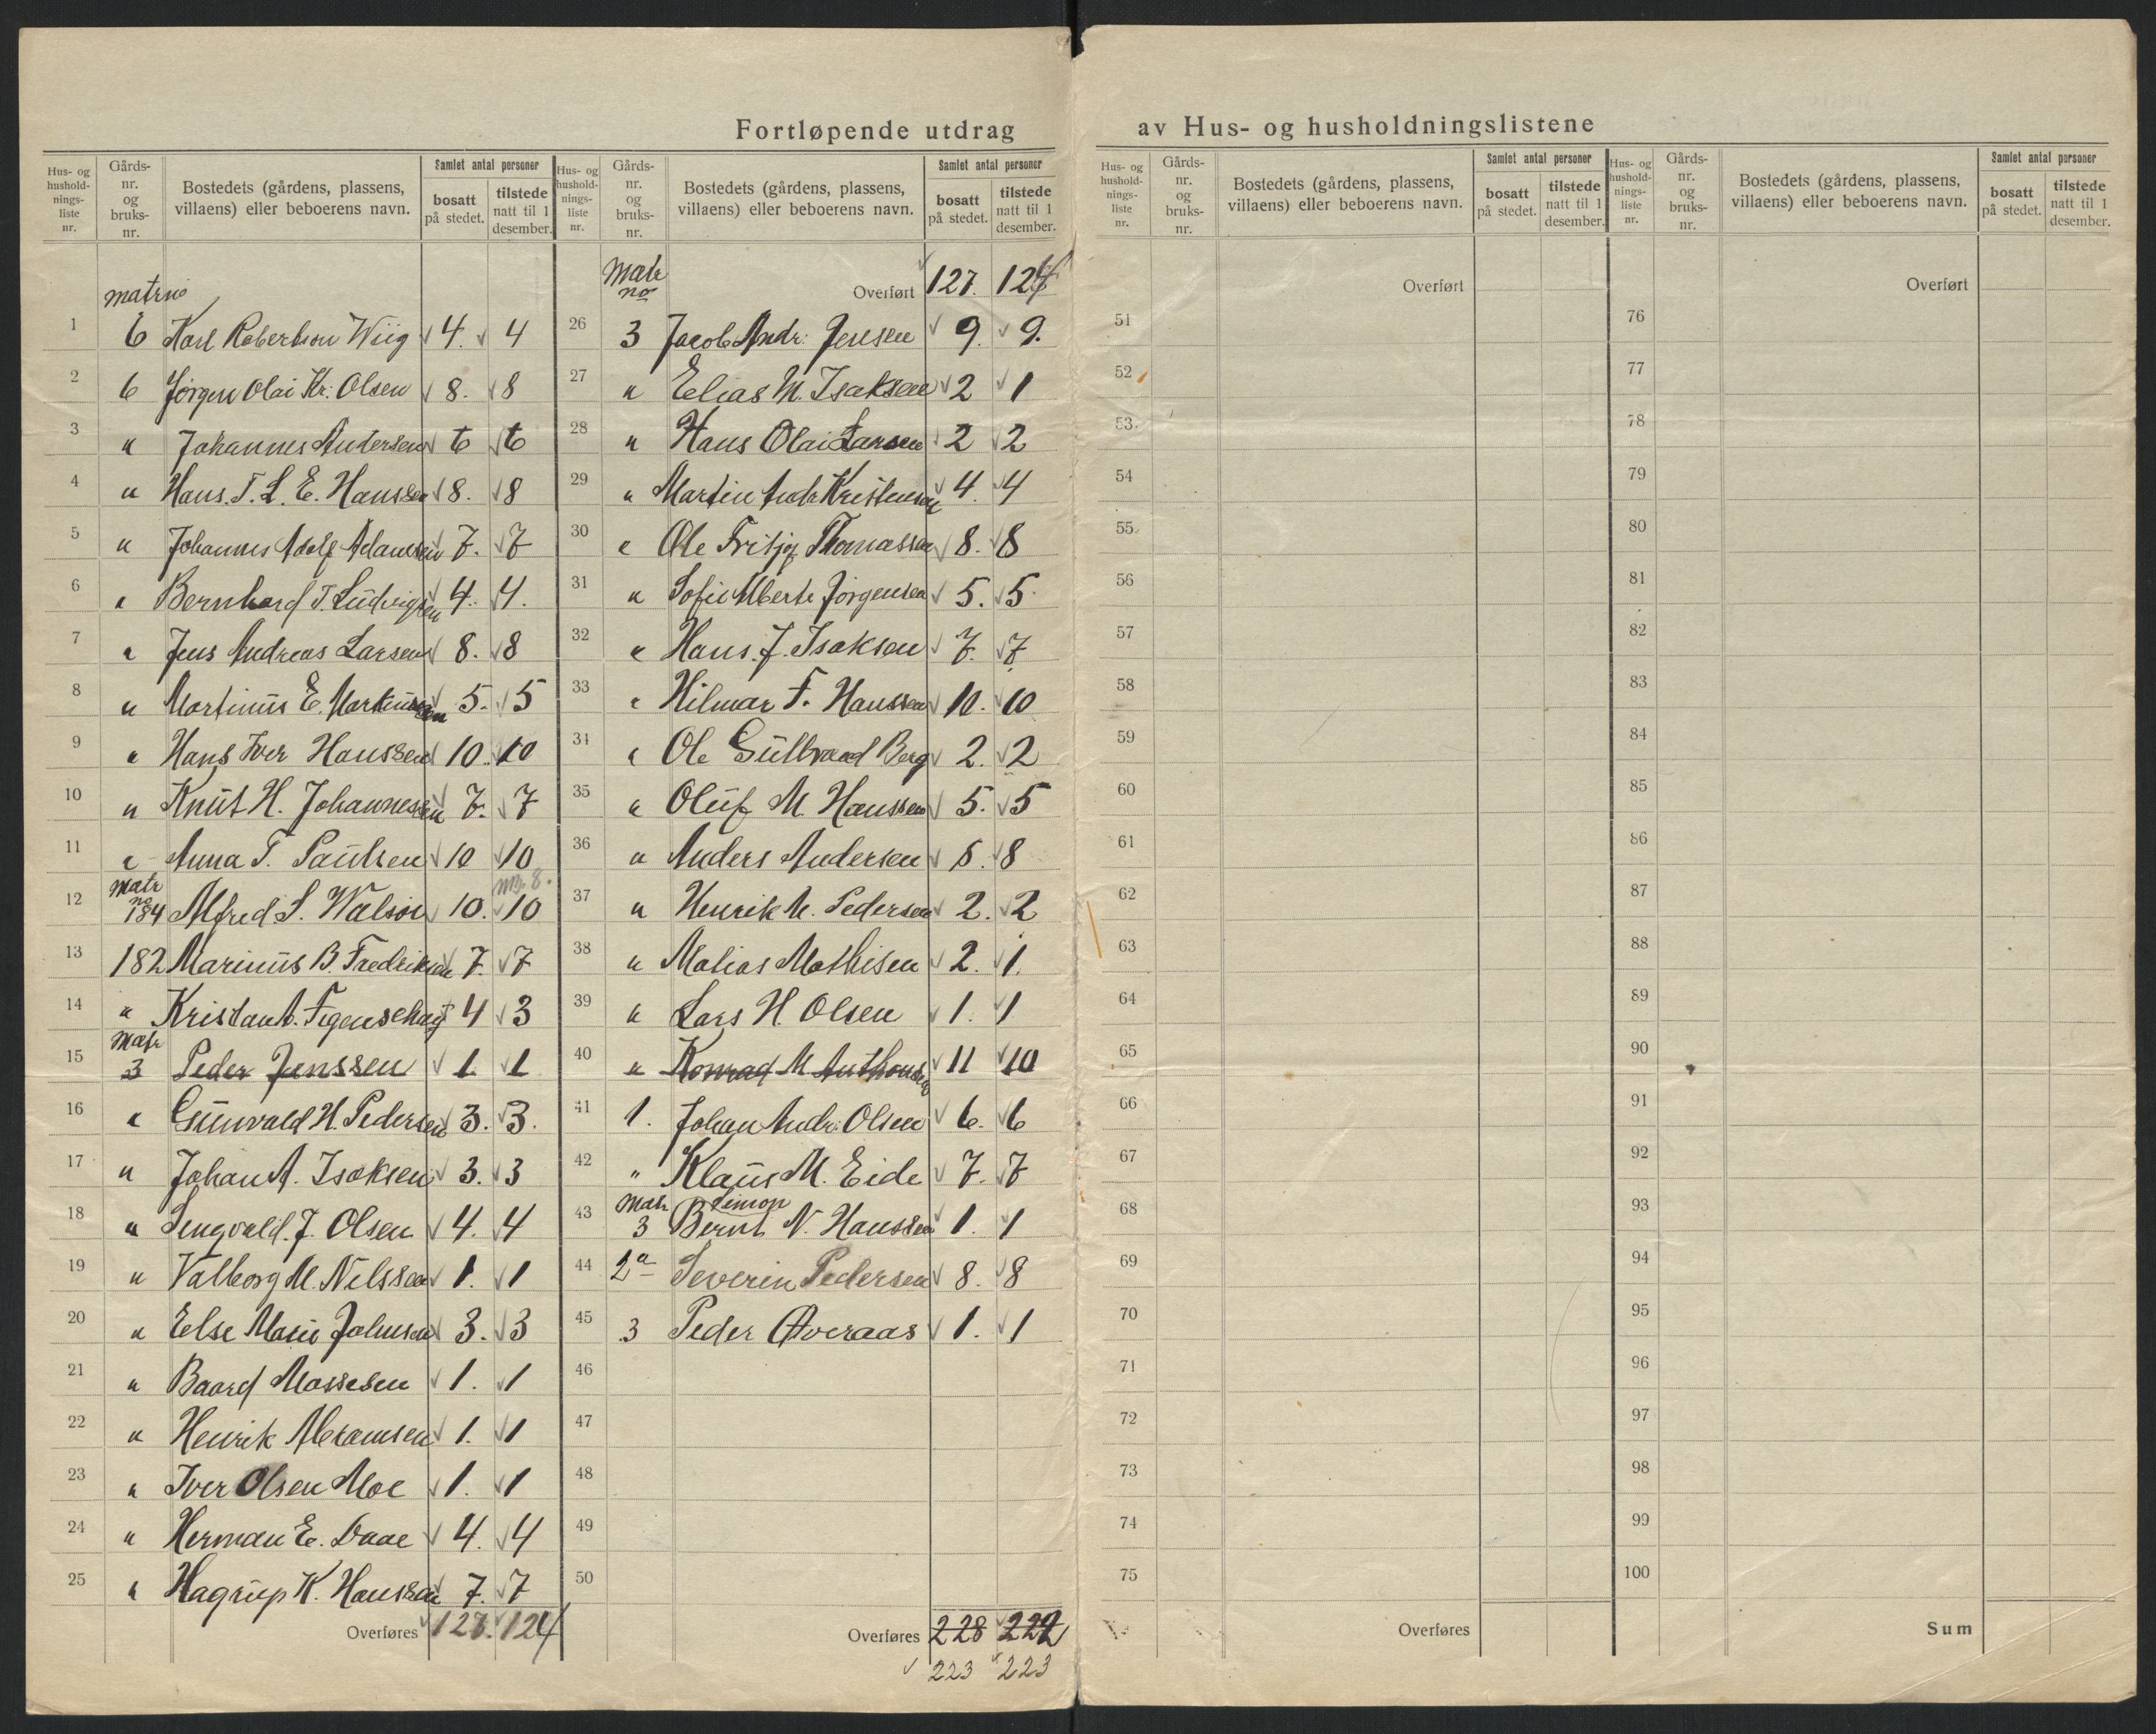 Fortløpende utdrag av Hus- og husholdningslistene
Hus- og hushold-nings-liste nr. | Gårds-nr. og bruks-nr. | Bostedets (gårdens, plassens, villaens) eller beboerens navn. | Samlet antal personer | bosatt på stedet. | tilstede natt til 1 desember.
matr no
1 6 Karl Robertson Wiig 4. 4
2 6 Jørgen Olai Kr. Olsen 8. 8
3 " Johannes Andersen 6 6
4 " Hans. T. L. E. Hanssen 8. 8
5 " Johannes Adolf Adamsen 7. 7
6 " Bernhard T. Ludvigsen 4. 4.
7 " Jens Andreas Larsen 8. 8
8 " Martinus E. Martinussen 5. 5
9 " Hans Iver Hanssen 10. 10
10 " Knut H. Johannessen 7. 7
11 " Anna T. Paulsen 10 10
12 Matr no 184 Alfred S. Walsøe 10. 10
13 182 Marinus B. Fredriksen 7. 7
14 " Kristan A. Figenschau 4 3
15 Matr 3 Peder Jenssen 1. 1
16 " Gunvald H. Pedersen 3. 3.
17 " Johan A. Isaksen 3. 3
18 " Sengvald. J. Olsen 4. 4
19 " Valborg M. Nilssen 1. 1
20 " Else Marie Johnsen 3. 3
21 " Baard Mossesen 1. 1
22 " Henrik Abramsen 1. 1
23 " Iver Olsen Moe 1. 1
24 " Herman E. Daae 4. 4
25 " Hagrup K. Hanssen 7. 7
Overføres 127. 124
Hus- og hushold-nings-liste nr. | Gårds-nr. og bruks-nr. | Bostedets (gårdens, plassens, villaens) eller beboerens navn. | Samlet antal personer | bosatt på stedet. | tilstede natt til 1 desember.
Matr no Overført 127. 124
26 3 Jacob Andr. Jensen 9. 9.
27 " Elias M. Isaksen 2 1
28 " Hans Olai Larsen 2 2
29 " Martin Andr Kristensen 4. 4
30 " Ole Fritjof Thomassen 8. 8
31 " Sofie Alberte Jørgensen 5. 5
32 " Hans. J. Isaksen 7. 7.
33 " Hilmar F. Hanssen 10. 10
34 " Ole Gullbrand Berg 2. 2
35 " Oluf M. Hanssen 5. 5
36 " Anders Andersen 8. 8
37 " Henrik M. Pedersen 2. 2
38 " Matias Mathisen 2. 1.
39 " Lars H. Olsen 1. 1
40 " Konrad M Anthonsen 11 10
41 1. Johan Andr. Olsen 6. 6
42 " Klaus M. Eide 7. 7
43 Matr 3 Simon Bernt N. Hanssen 1. 1
44 2a Severin Pedersen 8. 8
45 3 Peder Averaas 1. 1
46
47
48
49
50
Overføres 228 222
223 223
Hus- og hushold-nings-liste nr. | Gårds-nr. og bruks-nr. | Bostedets (gårdens, plassens, villaens) eller beboerens navn. | Samlet antal personer | bosatt på stedet. | tilstede natt til 1 desember.
Overført
51
52
53
54
55
56
57
58
59
60
61
62
63
64
65
66
67
68
69
70
71
72
73
74
75
Overføres
Hus- og hushold-nings-liste nr. | Gårds-nr. og bruks-nr. | Bostedets (gårdens, plassens, villaens) eller beboerens navn. | Samlet antal personer | bosatt på stedet. | tilstede natt til 1 desember.
Overført
76
77
78
79
80
81
82
83
84
85
86
87
88
89
90
91
92
93
94
95
96
97
98
99
100
Sum